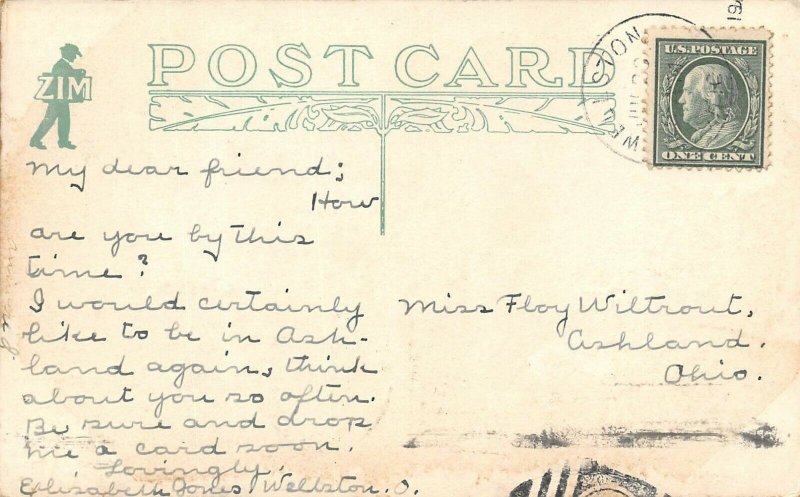 ZIM
POST CARD
U.S. POSTAGE
ONE CENT
My dear friend;
How
are you by this
time?
I would certainly
like to be in Ash-
land again, think
about you so often.
Be sure and drop
me a card soon.
Lovingly,
Elizabeth Jones, Wellston. O.
Miss Floy Wiltrout,
Ashland.
Ohio.